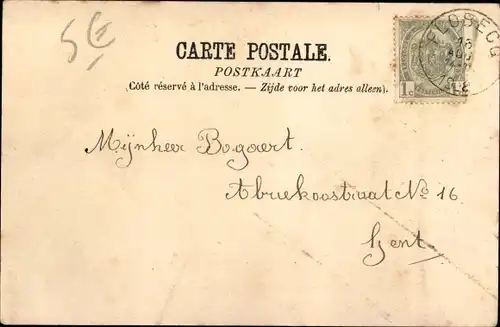 5€
CARTE POSTALE.
POSTKAART
(Côté réservé à l'adresse. — Zijde voor het adres alleen).
1c
Mijnheer Bogaert.
No 16
Gent.